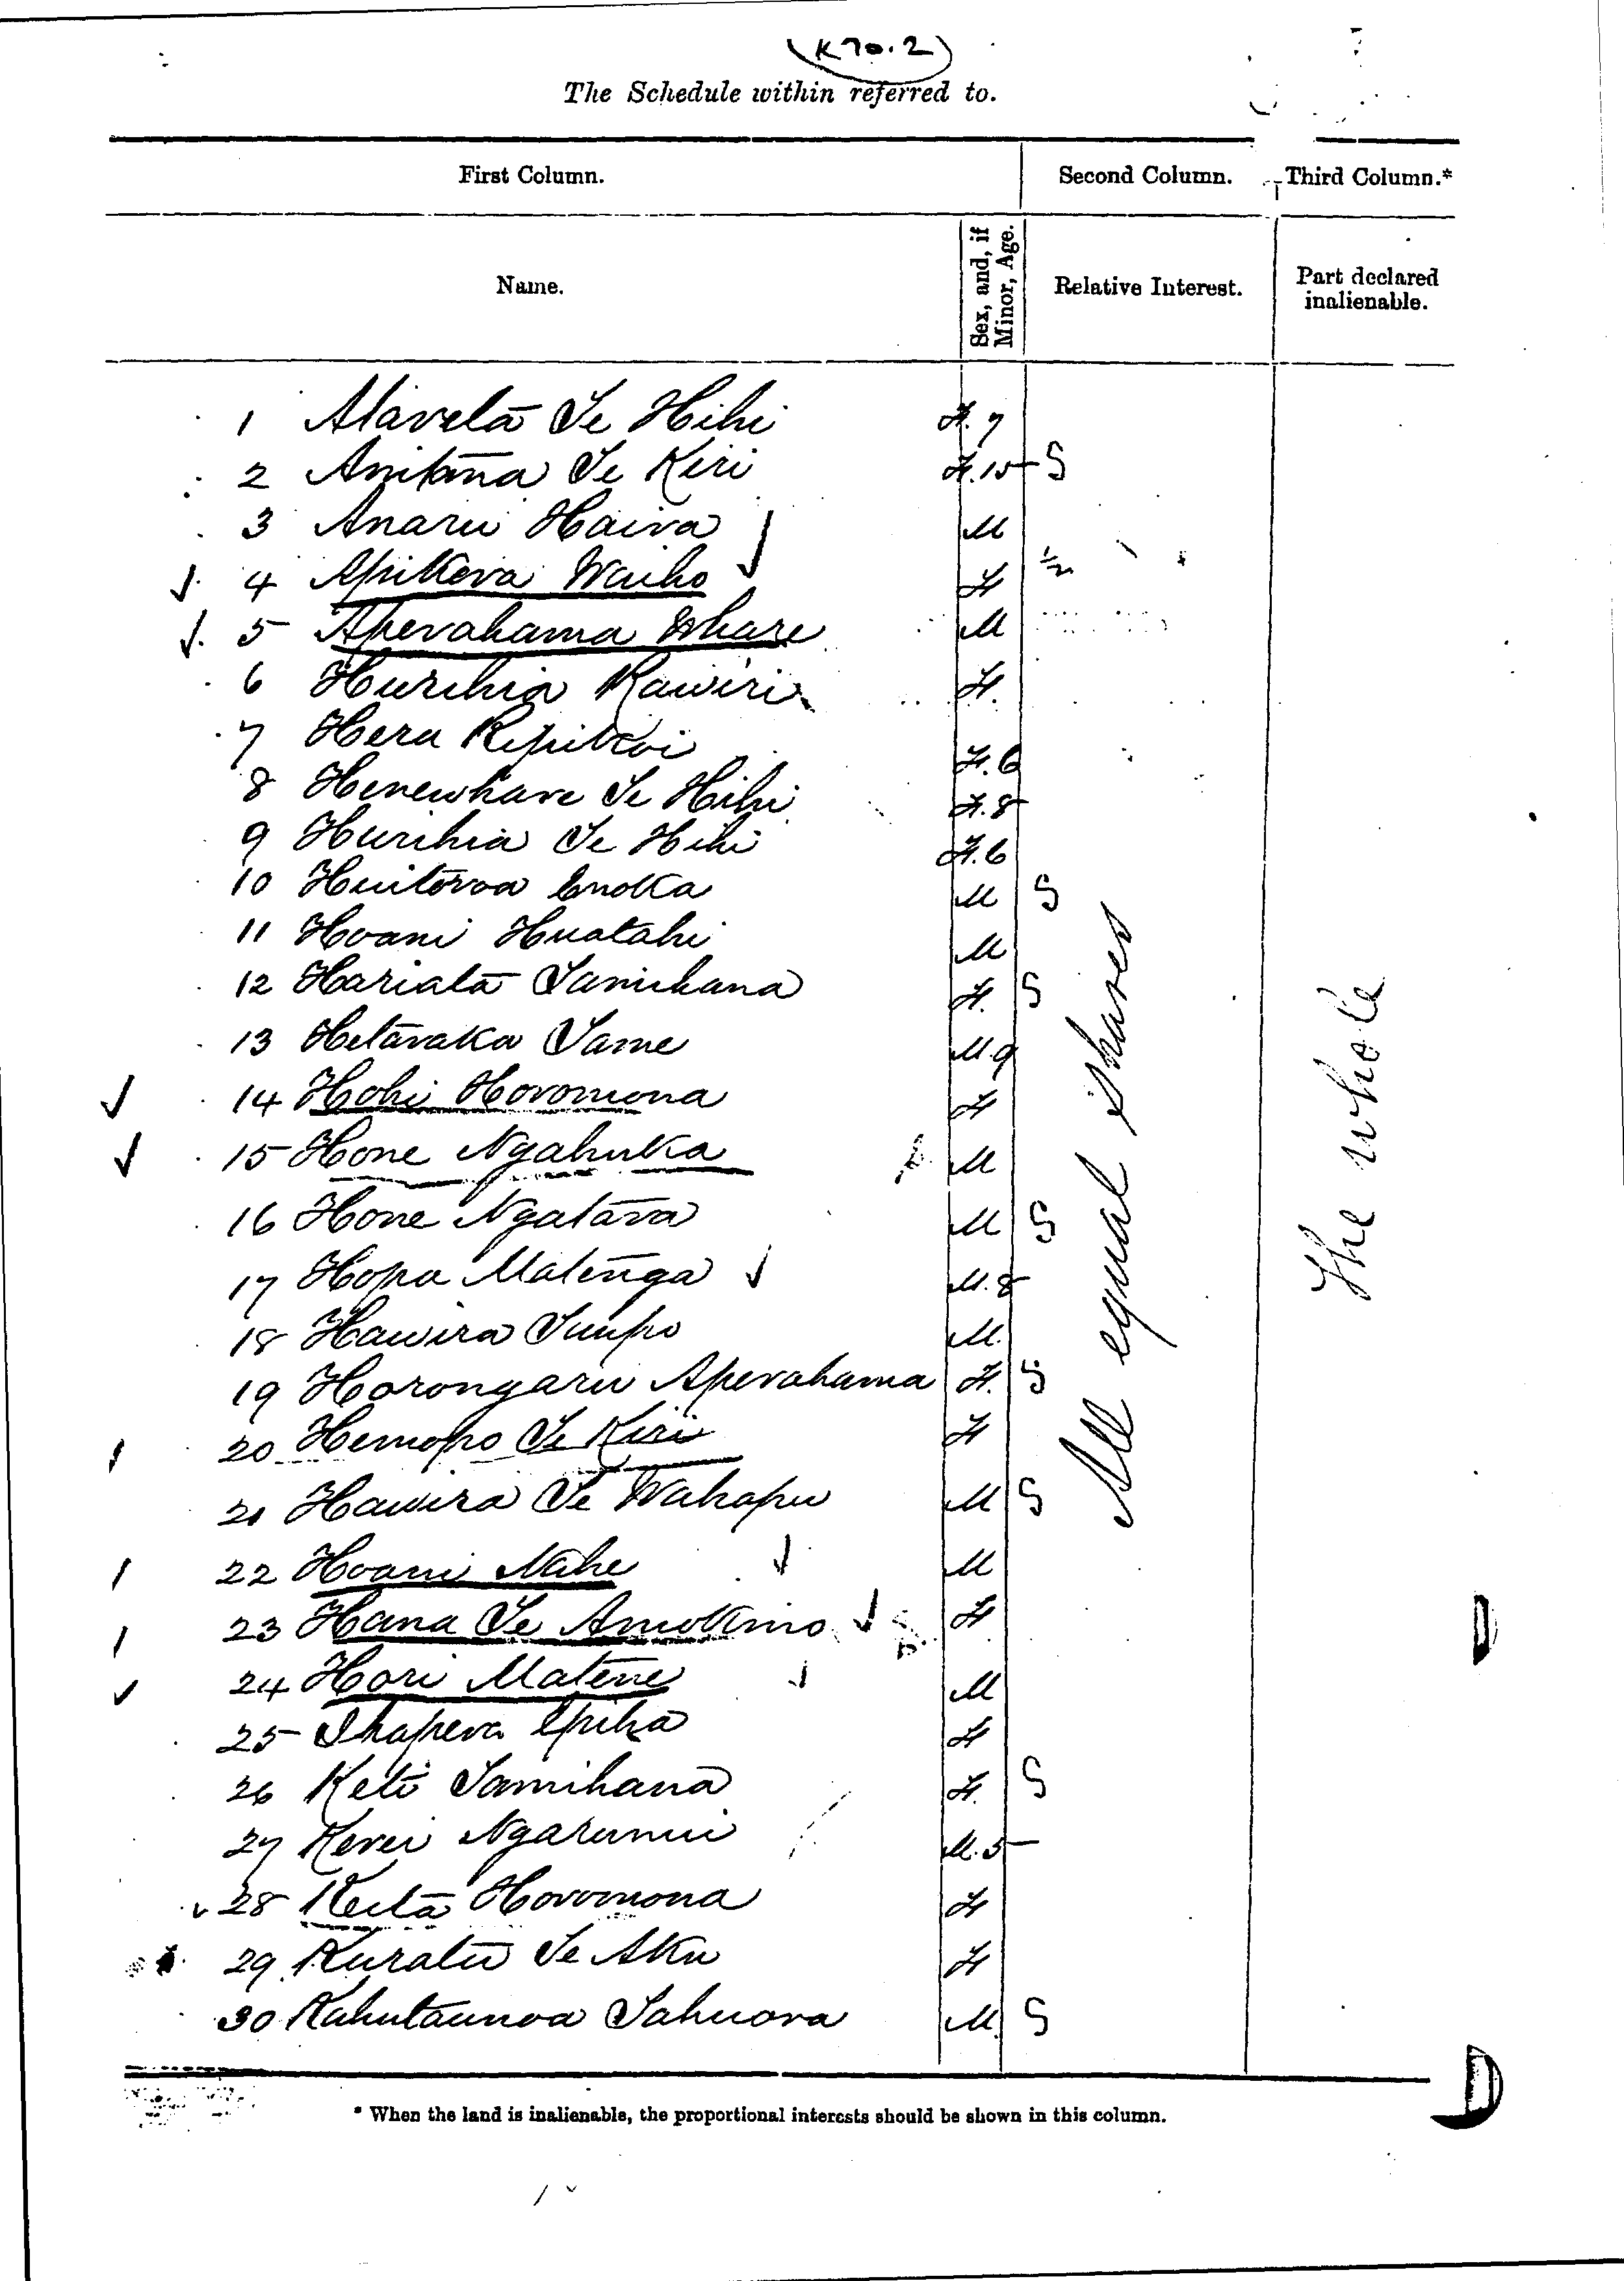 (K70.2)
The Schedule within referred to.
First Column. Second Column. Third Column.*
Name. Sex, and, if Minor, Age. Relative Interest. Part declared inalienable.
1 Atareta Te Hihi F. 7
2 Anitana Te Kiri F. 15 S
3 Anaru Haira M
4 Apikera Waiho F 1/2
5 Aperahama Whare M
6 Hurihia Rawiri F.
7 Hera F. 6
8 Henewhare Te Hihi F. 8
9 Hurihia Te Hihi F. 6
10 Huitoroa Enoka M S
11 Hoani Huatahi M
12 Hariata Tamihana F. S
13 Hetaraka Tame M. 9
14 Hohi Horomona F
15 Hone Ngahuka M
16 Hone Ngatara M S
17 Hopa Matenga M. 8
18 Hawira Tuupo M.
19 Horongaru Aperahama F. S
20 Hemopo Te Kiri F
21 Hawira Te Wahapu M S
22 Hoani Nahe M
23 Hana Te Amokino F
24 Hori Matene M
25 Ihapera Epiha F
26 Keti Tamihana F. S
27 Kerei Ngarunui M. 5
28 Keita Horomona F
29 Kuratu Te Aku F
30 Kahutaunoa Tahuora M. S
All equal shares
The whole
* When the land is inalienable, the proportional interests should be shown in this column.